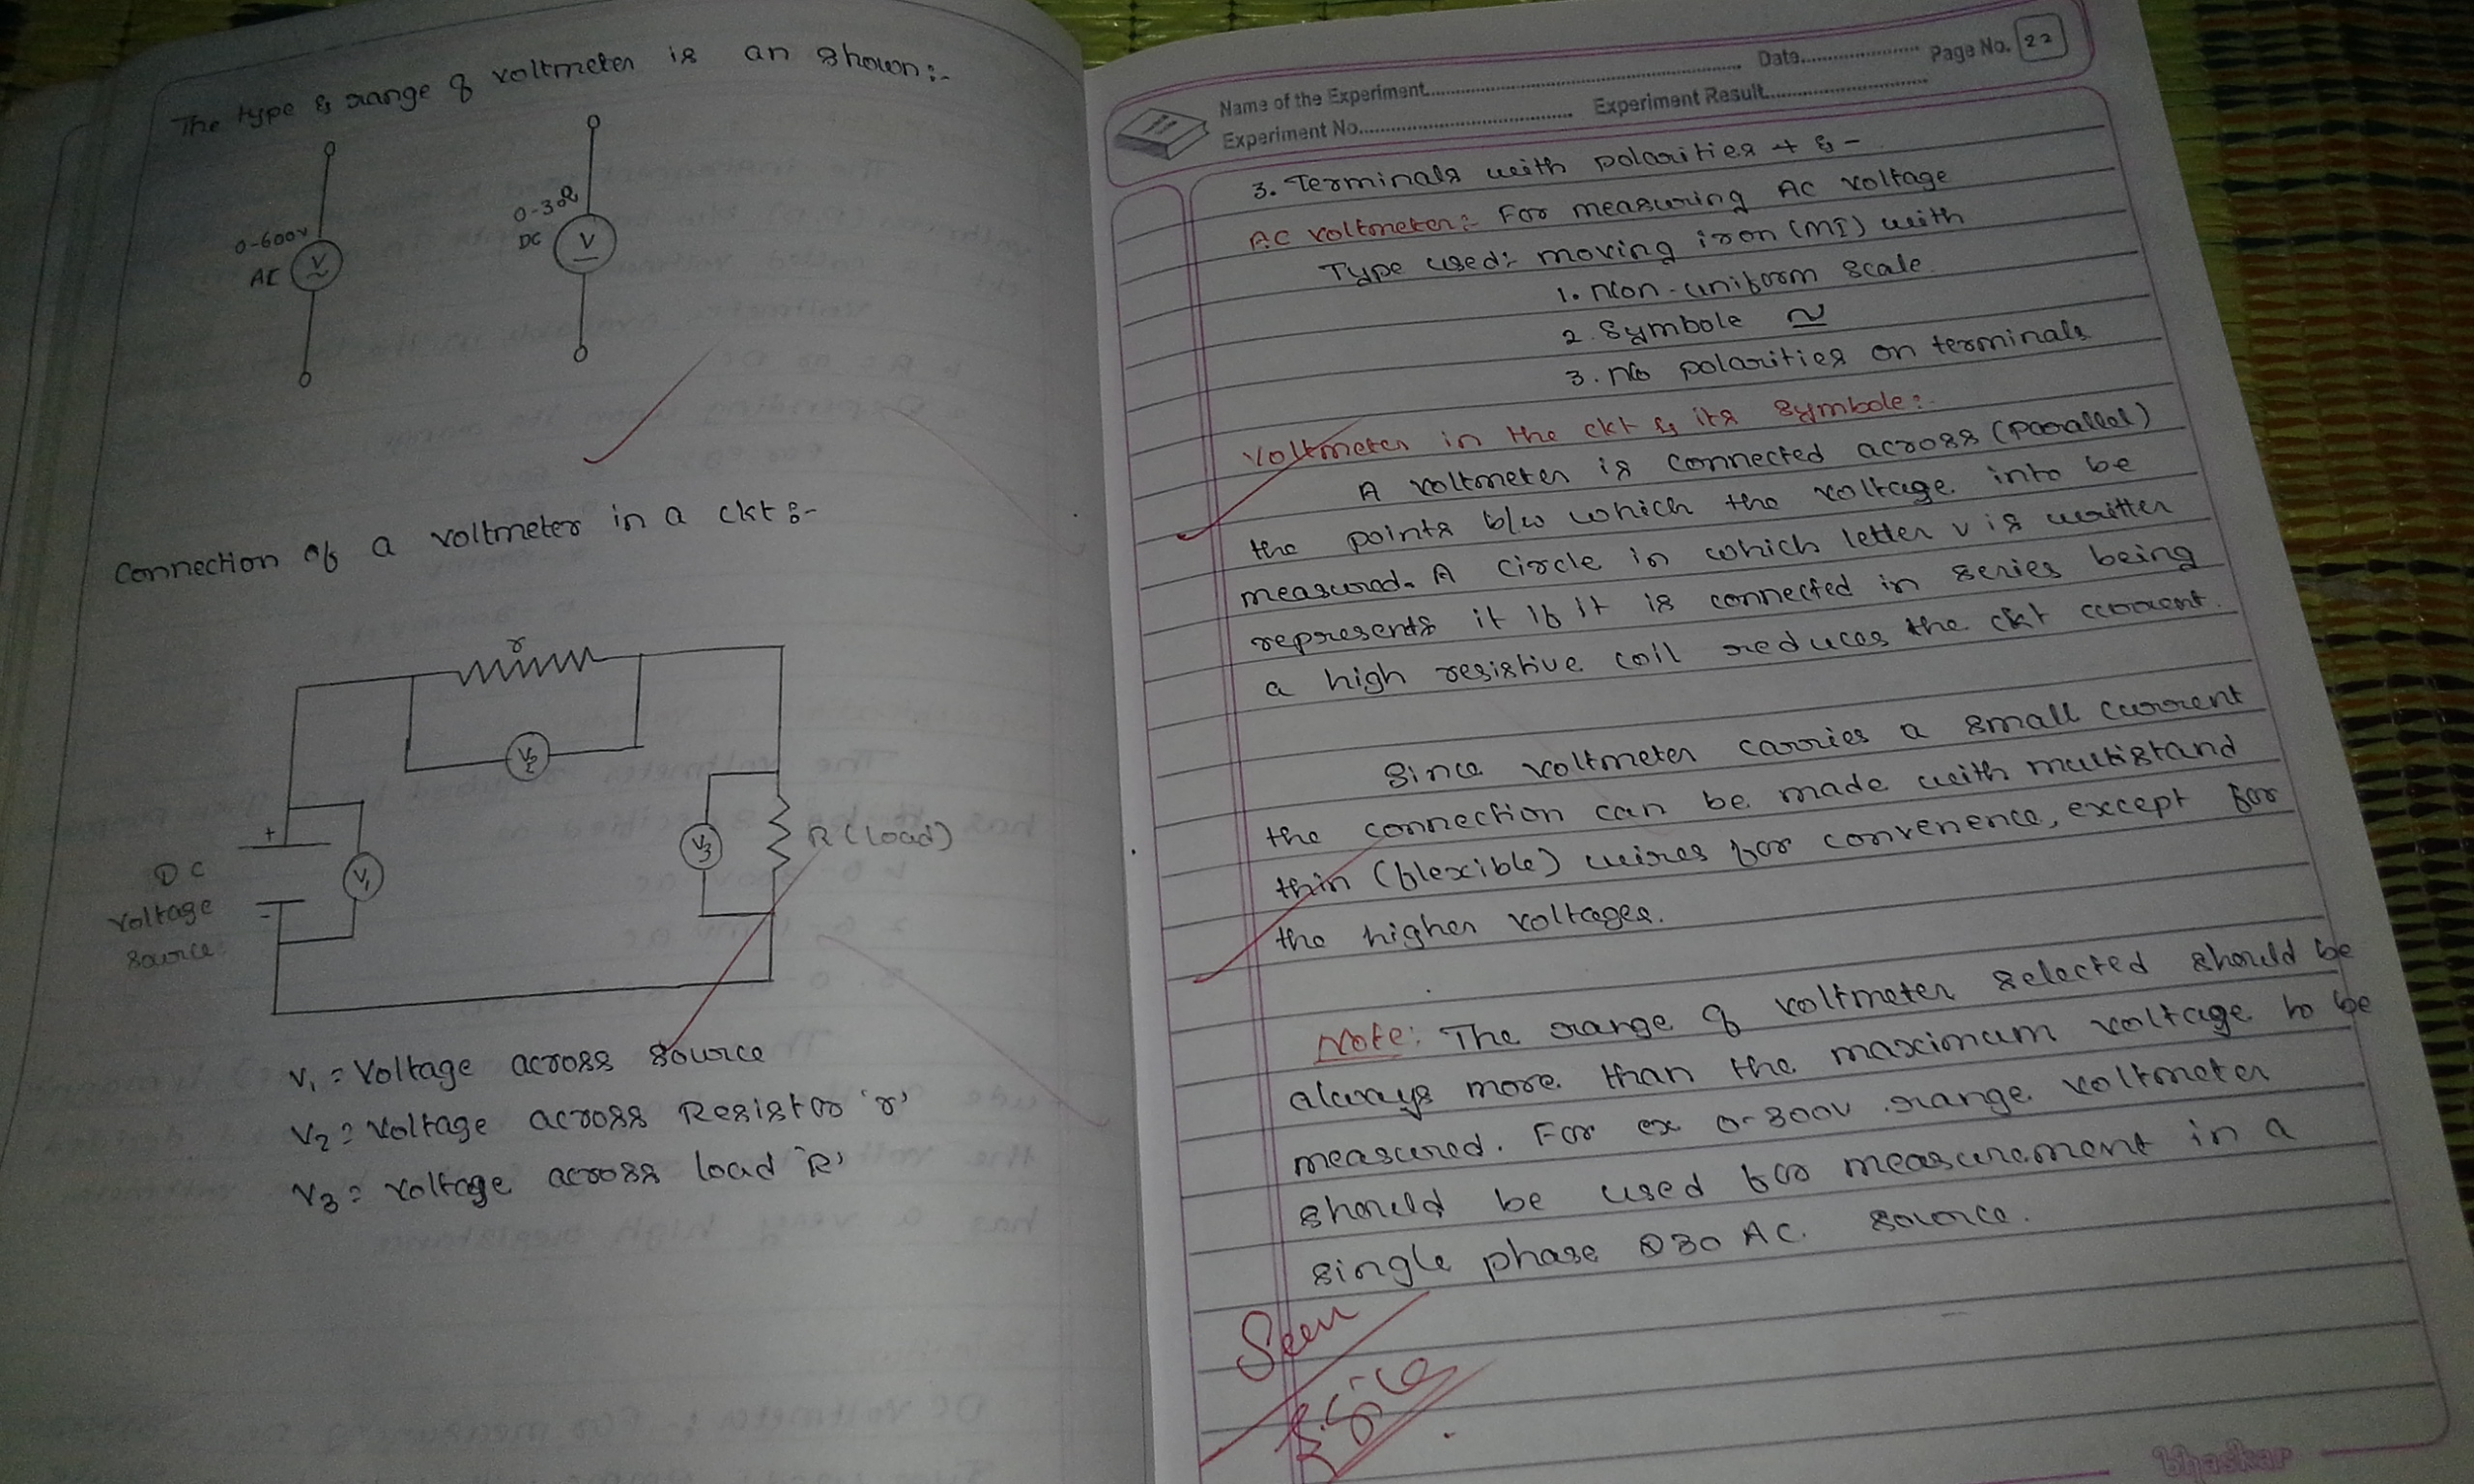 The type & range of voltmeter is an shown:-
0-600v
AC
V
0-30
DC
V
Connection of a voltmeter in a ckt:-
r
V2
+
DC
Voltage
Source
-
V1
V3
R (load)
V1 = Voltage across source
V2 = Voltage across Resistor 'r'
V3 = Voltage across load 'R'
Name of the Experiment Date Page No. 22
Experiment No. Experiment Result
3. Terminals with polarities + & -
AC voltmeter:- For measuring AC voltage
Type used:- moving iron (MI) with
1. Non-uniform scale
2. Symbole ~
3. No polarities on terminals
Voltmeter in the ckt & its symbole:-
A voltmeter is connected across (parallel)
the points b/w which the voltage into be
measured. A circle in which letter v is written
represents it If it is connected in series being
a high resistive coil reduces the ckt current.
Since voltmeter carries a small current
the connection can be made with multistand
thin (flexible) wires for convenence, except for
the higher voltages.
Note: The range of voltmeter selected should be
always more than the maximum voltage to be
measured. For ex 0-300v range voltmeter
should be used for measurement in a
single phase 230 AC. source.
Seen
Bhaskar